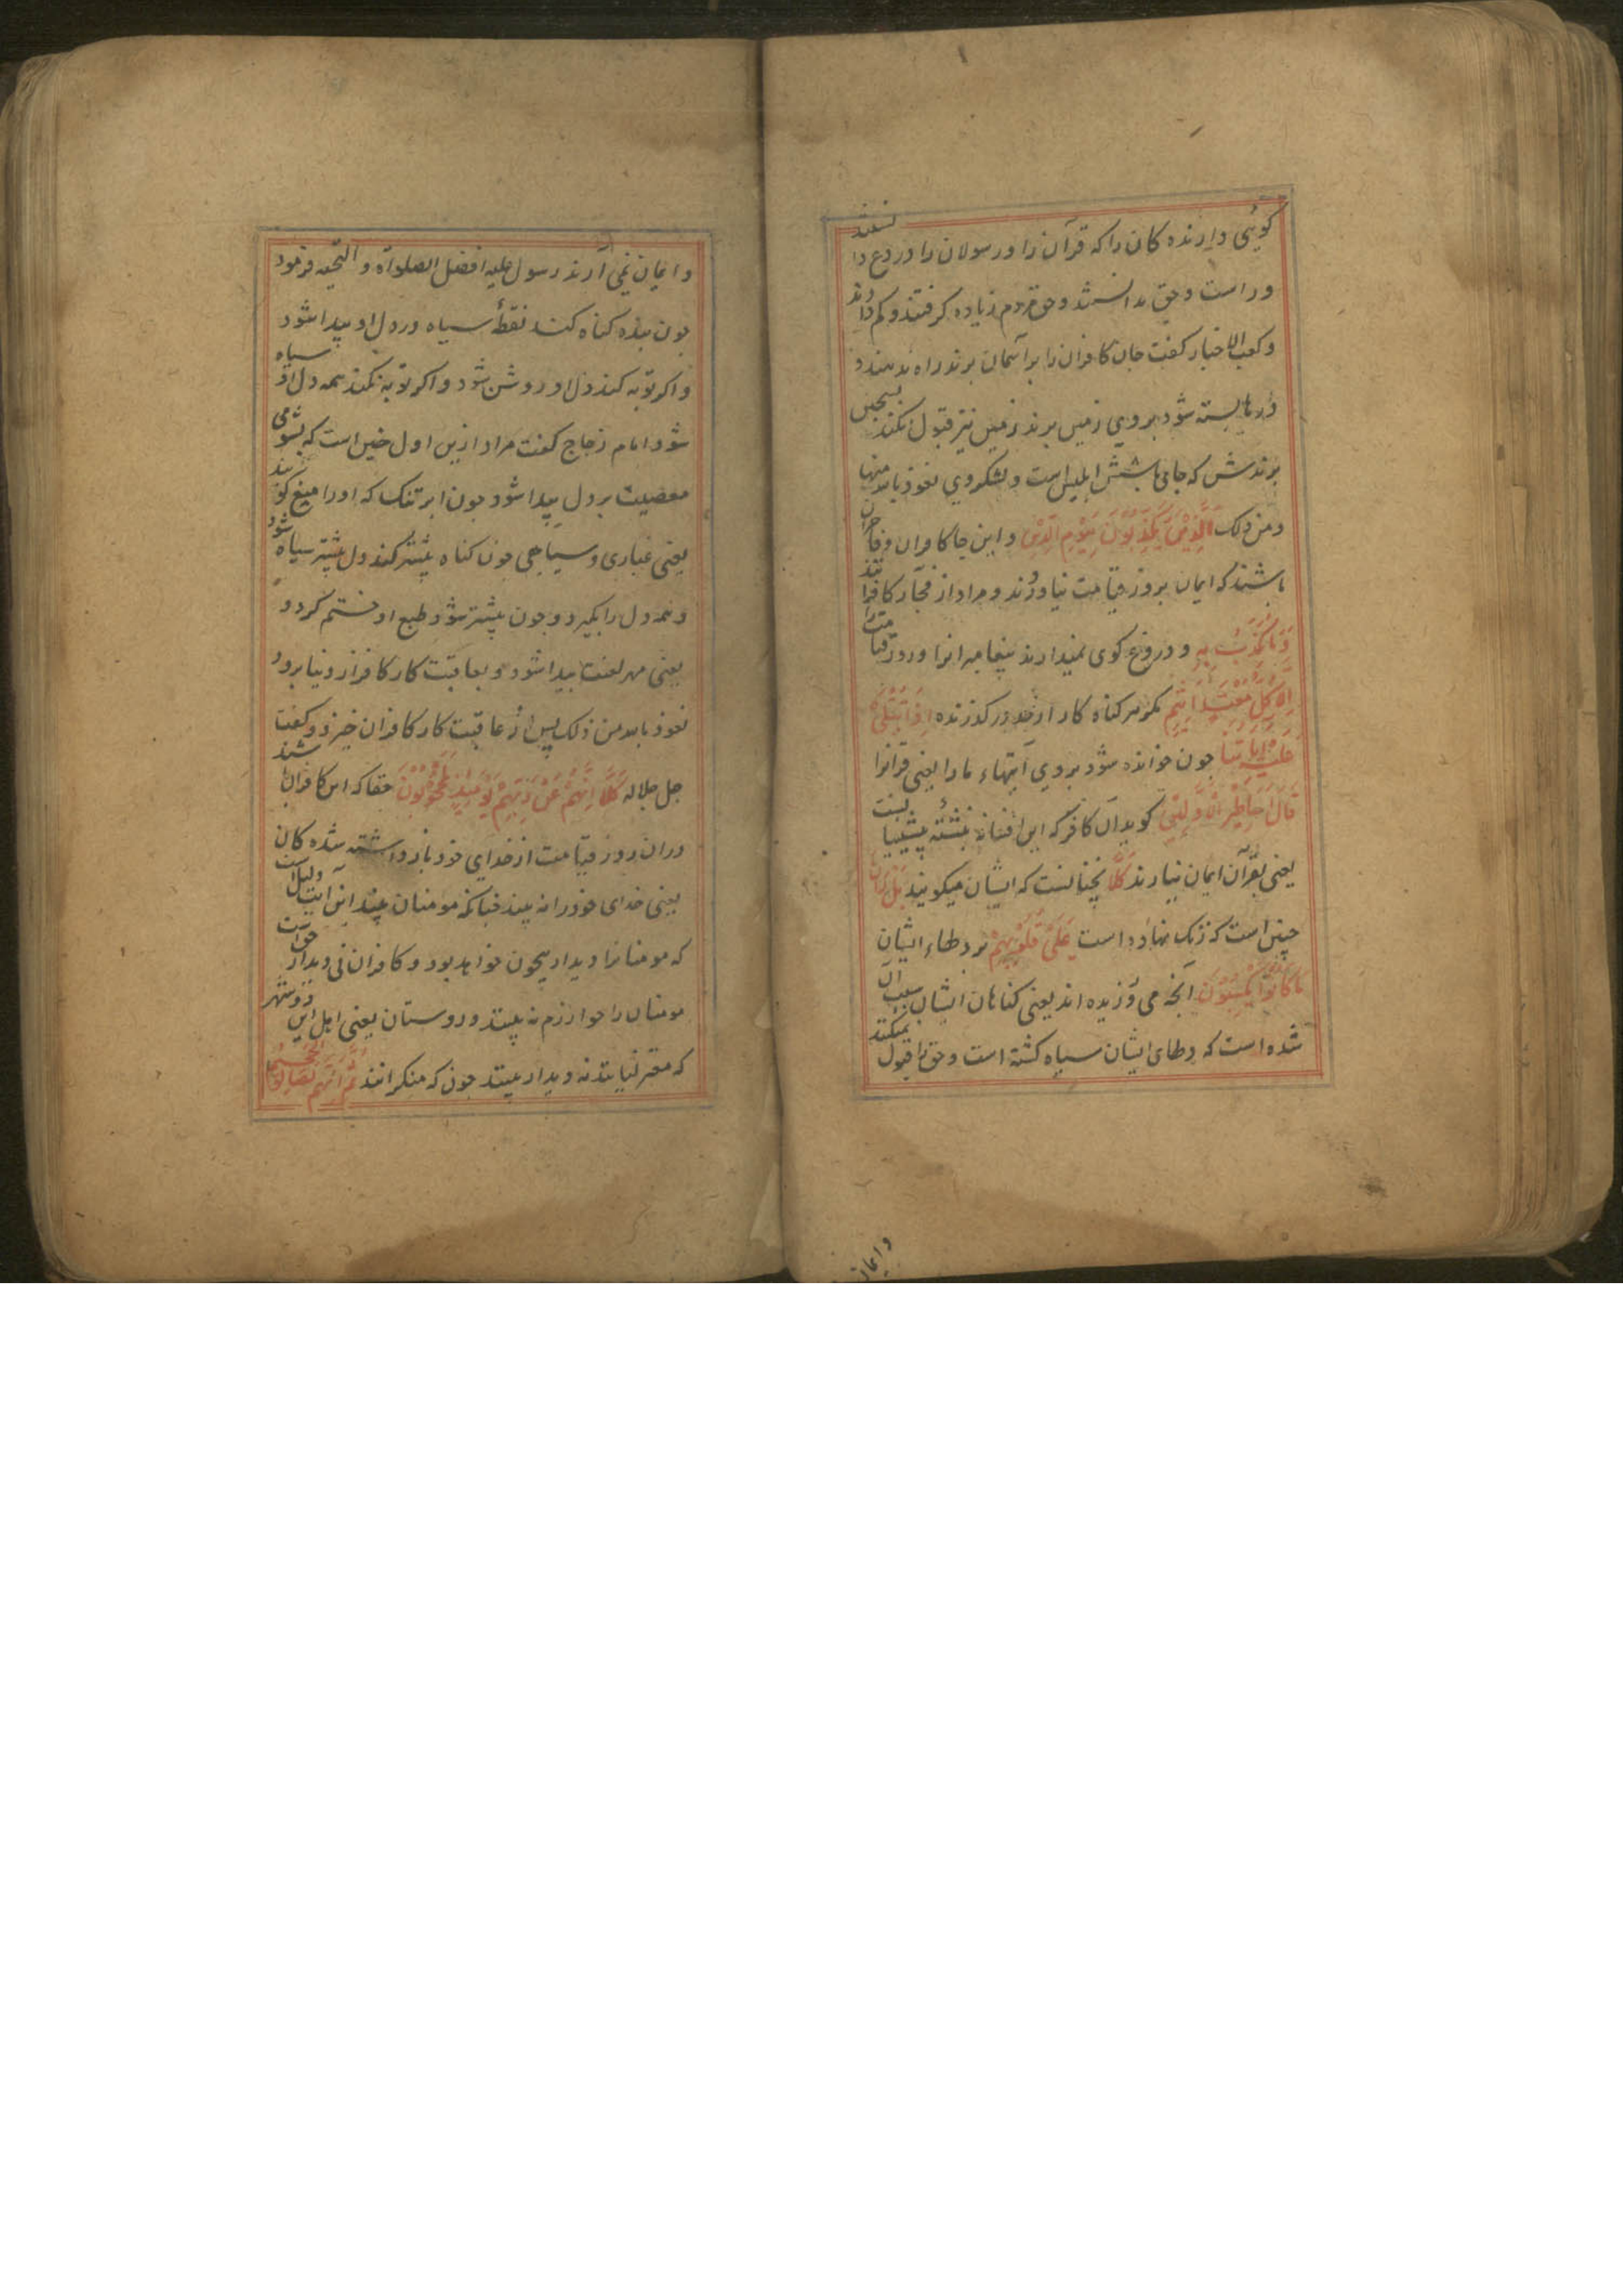 کوئی دارنده کان را که قرآن را و رسولان را دروغ دانستند
و راست و حق ندانستند و حق مردم زیاده کرفتند و کم دادند
و کعب الاحبار کفت جان کافران را بر آسمان برند راه ندهند و
درها بسته شود بر وی زمین برند زمین نیز قبول نکند بسجین
برندش که جای باشش ابلیس است و لشکر وی نعوذ بالله منها
و من ذلک الَّذِیْنَ یُکَذِّبُوْنَ بِیَوْمِ الدِّیْنِ و این جا کافران و فاجران
باشند که ایمان بروز قیامت نیاورند و مراد از فجار کافرانند
وَمَا یُکَذِّبُ بِهٖ و دروغ کوی نمیدارند پیغامبرانرا و روز قیامت را
اِلَّا کُلُّ مُعْتَدٍ اَثِیْمٍ مکر هر کناه کار از حد در کذرنده اِذَا تُتْلٰی
عَلَیْهِ اٰیَاتُنَا چون خوانده شود بر وی آیتهاء ما را یعنی قرآنرا
قَالَ اَسَاطِیْرُ الْاَوَّلِیْنَ کوید آن کافر که این افسانه نبشته پیشینیانست
یعنی بقرآن ایمان نیارند کَلَّا نچنانست که ایشان میکویند بَلْ رَانَ
چنین است که زنک نهاده است عَلٰی قُلُوْبِهِمْ بر دلهاء ایشان
مَا کَانُوْا یَکْسِبُوْنَ آنچه می ورزیده اند یعنی کناهان ایشان سبب آن
شده است که دلهای ایشان سیاه کشته است و حق را قبول نمیکنند
وایمان
و ایمان نمی آرند رسول علیه افضل الصلواة و التحیه فرمود
چون بنده کناه کند نقطۀ سیاه در دل او پیدا شود
و اکر توبه کند دل او روشن شود و اکر توبه نکند همه دل او سیاه
شود امام زجاج کفت مراد ازین اول چنین است که بشومی
معصیت بر دل پیدا شود چون ابر تنک که او را میغ کویند
یعنی غباری و سیاهی چون کناه بیشتر کند دل بیشتر سیاه شود
و همه دل را بکیرد و چون بیشتر شود طبع او ختم کردد
یعنی مهر لعنت پیدا شود و بعاقبت کار کافر از دنیا برود
نعوذ بالله من ذلک پس از عاقبت کار کافران خبر داد و کفت
جل جلاله کَلَّا اِنَّهُمْ عَنْ رَبِّهِمْ یَوْمَئِذٍ لَمَحْجُوْبُوْنَ حقا که این کافران باشند
دران روز قیامت از خدای خود باز داشته شده کان
یعنی خدای خود را نه بینند چنانکه مومنان بینند این آیت دلیل است
که مومنانرا دیدار بیچون خواهد بود و کافران نی دیدار حق است
مومنان را خوارزم نه بینند و روستان یعنی اهل این دو شهر
که معتزلیانند نه دیدار بینند چون که منکرانند ثُمَّ اِنَّهُمْ لَصَالُوا الْجَحِیْمِ